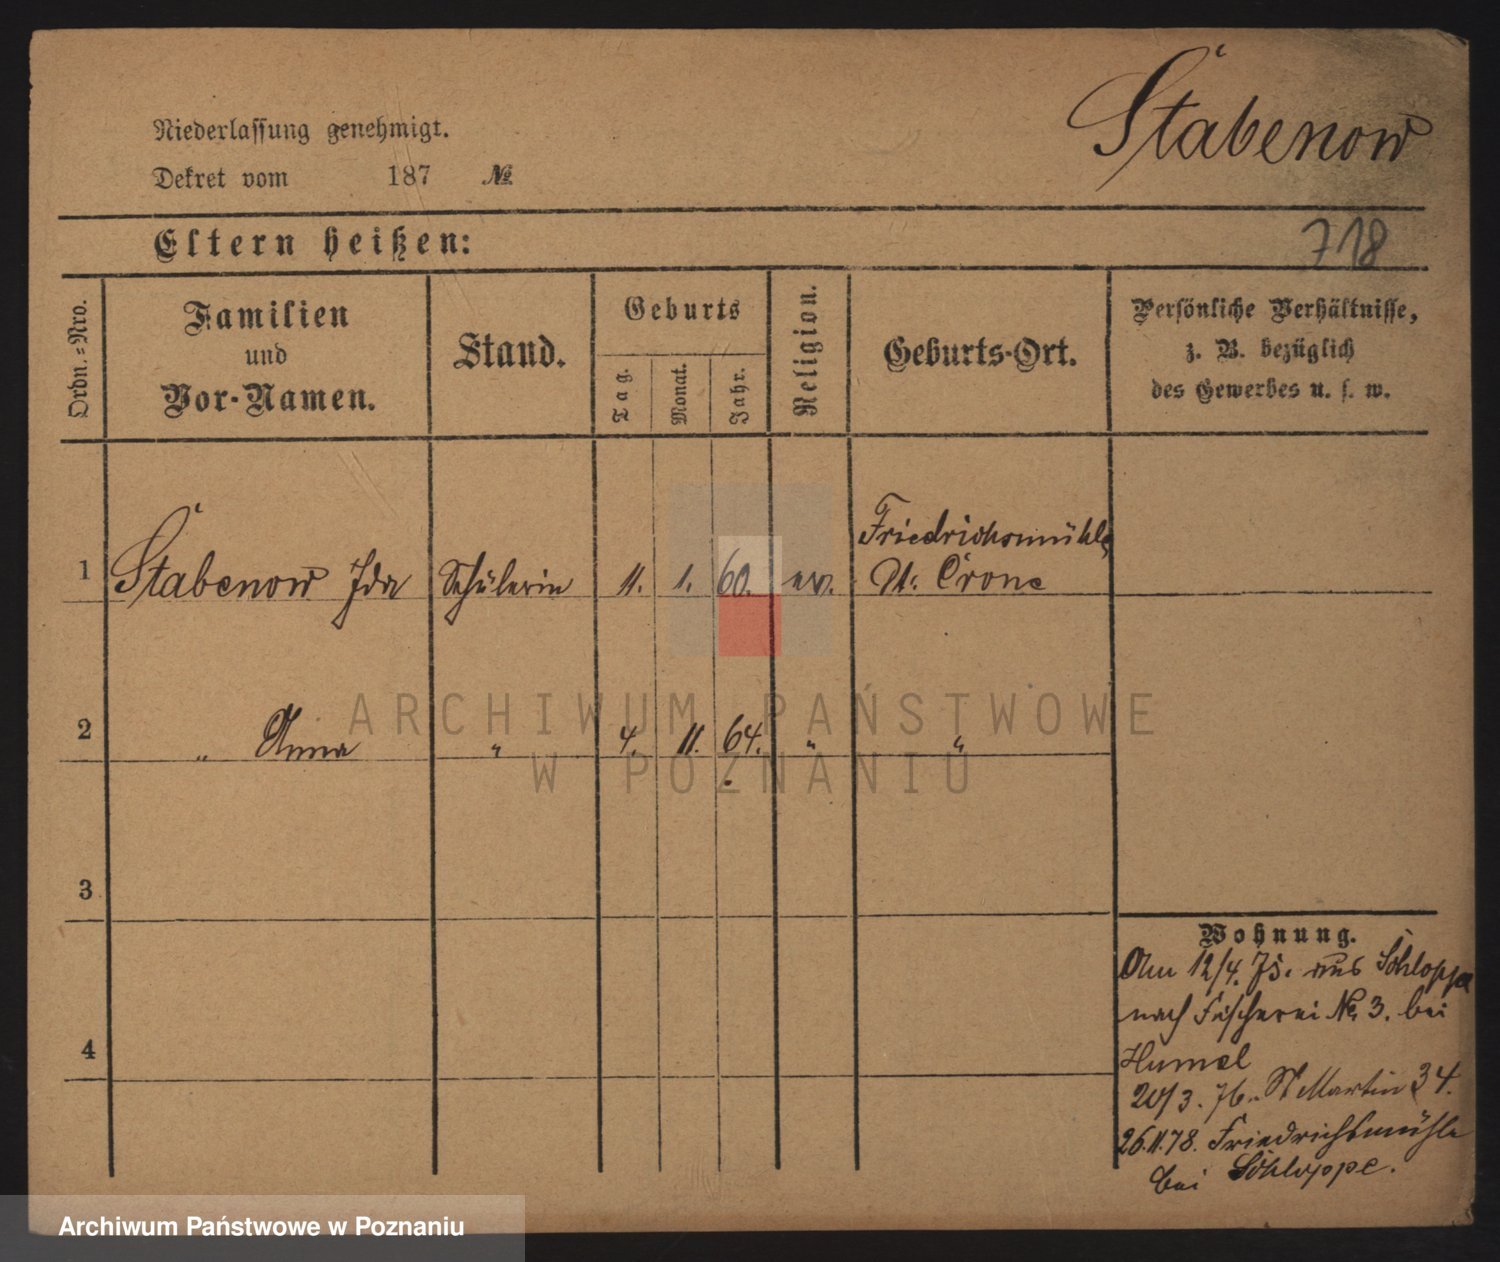 Stabenow
Niederlassung genehmigt.
Dekret vom 187 №
Eltern heißen:
718
Ordn.=Nro.
Familien
und
Vor-Namen.
Stand.
Geburts
Tag.
Monat.
Jahr.
Religion.
Geburts-Ort.
Persönliche Verhältnisse,
z. B. bezüglich
des Gewerbes u. s. w.
1 Stabenow Ida Schülerin 11. 1. 60. ev. Friedrichsmühle
Dt. Crone
2 " Anna " 4. 11. 64. " "
3
4
Wohnung.
Am 12/4. 75. aus Schloppe
nach Fischerei № 3. bei
Humel
20/3. 76. St Martin 34.
26.11.78. Friedrichsmühle
bei Schloppe.
ARCHIWUM PAŃSTWOWE
W POZNANIU
Archiwum Państwowe w Poznaniu